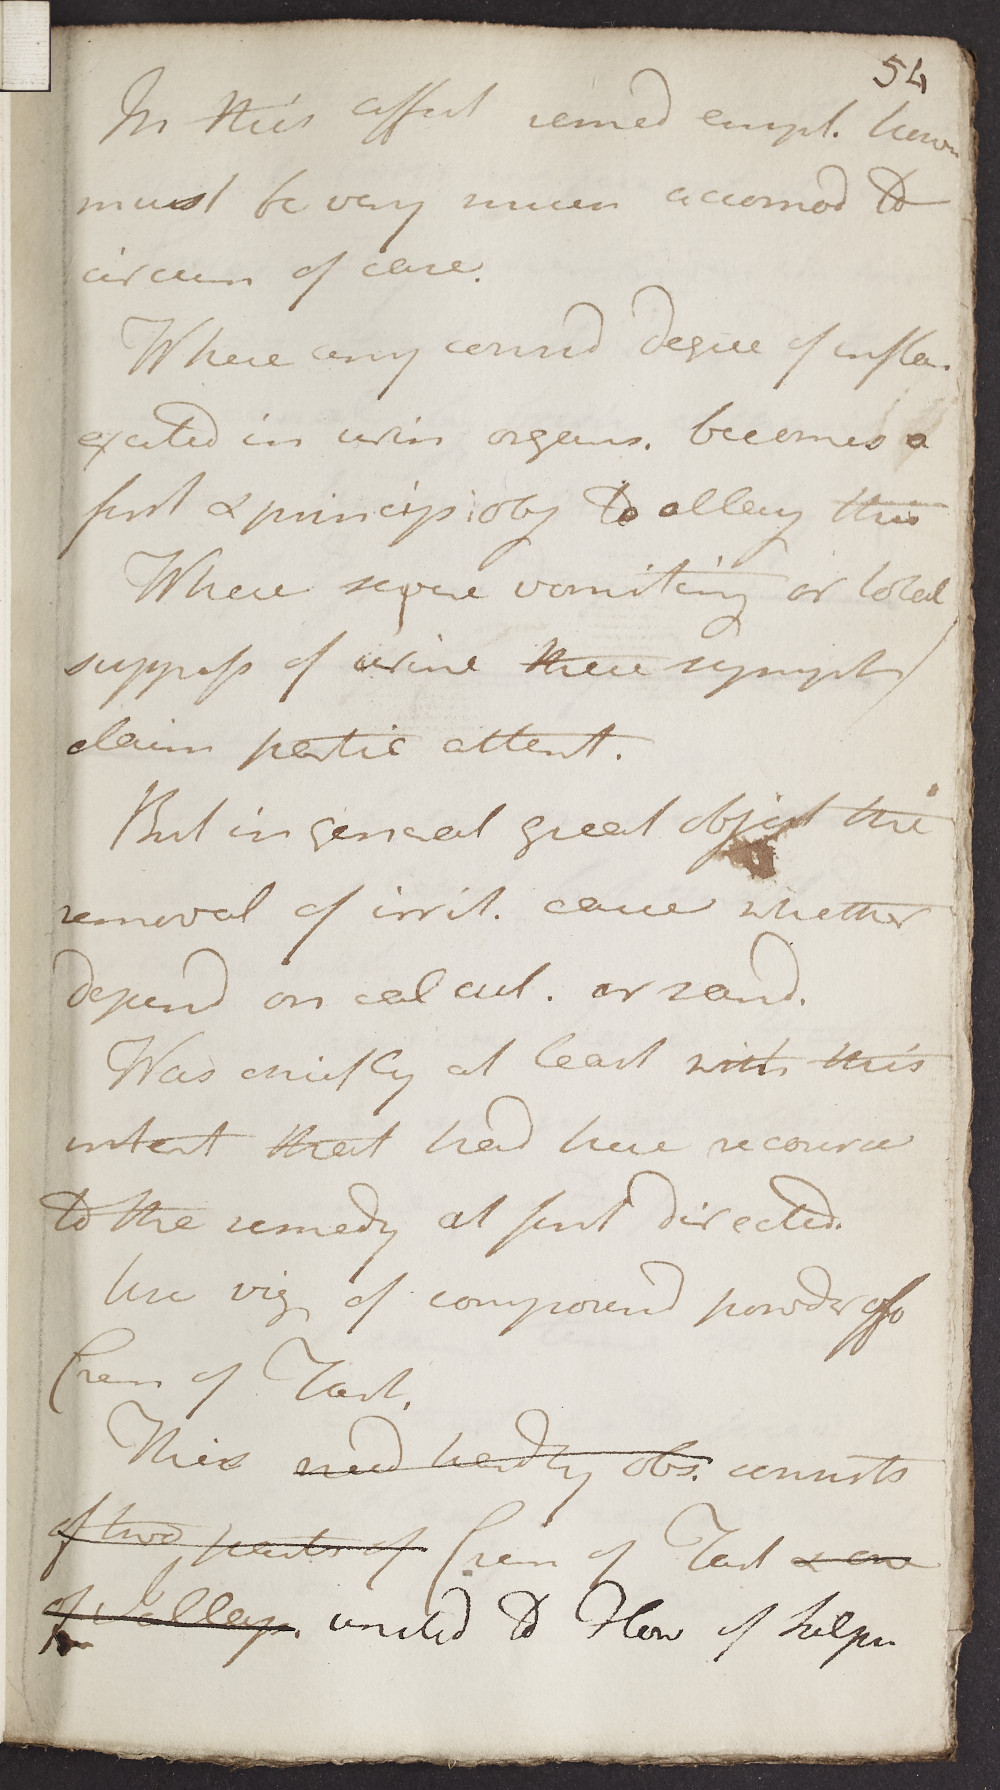 54
In this affect remed empl. howr
must be very much accomod to
circum of case.
Where any consid degree of inflam
excited in urin organs. becomes a
first & princip. obj to allay this
Where severe vomiting or total
suppress of urine these sympt
claim partic attent.
But in general great object the
removal of irrit. cause whether
depend on calcul. or sand.
Was chiefly at least with this
intent that had here recourse
to the remedy at first directed.
Use viz of compound powder of
Crem of Tart.
This need hardly obs. consists
of two parts of Crem of Tart & one
of Jallap. united to Flow of Sulphu